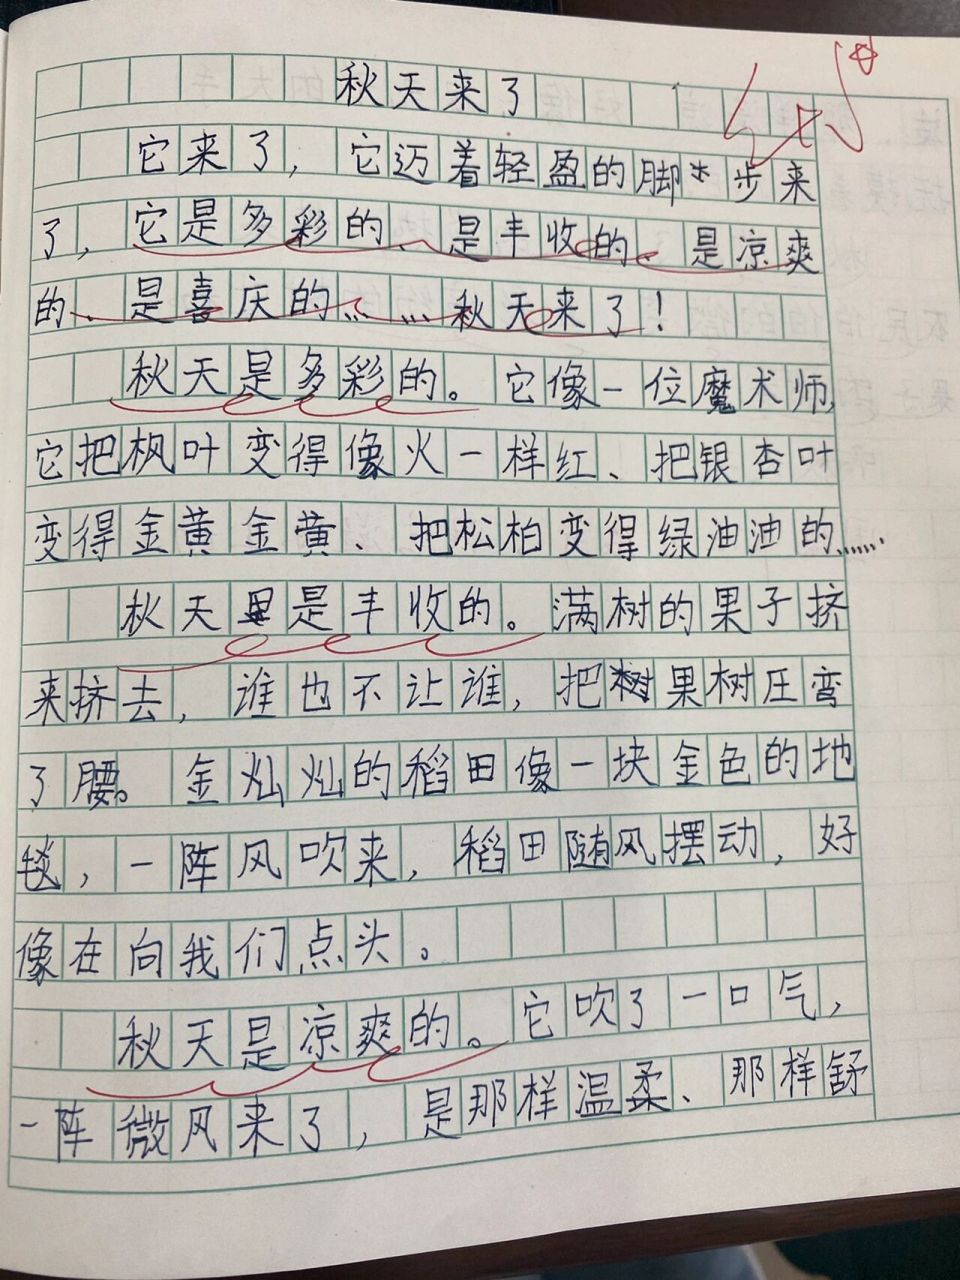 秋天来了
它来了，它迈着轻盈的脚步来
了，它是多彩的、是丰收的、是凉爽
的、是喜庆的……秋天来了！
秋天是多彩的。它像一位魔术师，
它把枫叶变得像火一样红、把银杏叶
变得金黄金黄、把松柏变得绿油油的……
秋天是丰收的。满树的果子挤
来挤去，谁也不让谁，把果树压弯
了腰。金灿灿的稻田像一块金色的地
毯，一阵风吹来，稻田随风摆动，好
像在向我们点头。
秋天是凉爽的。它吹了一口气，
一阵微风来了，是那样温柔、那样舒